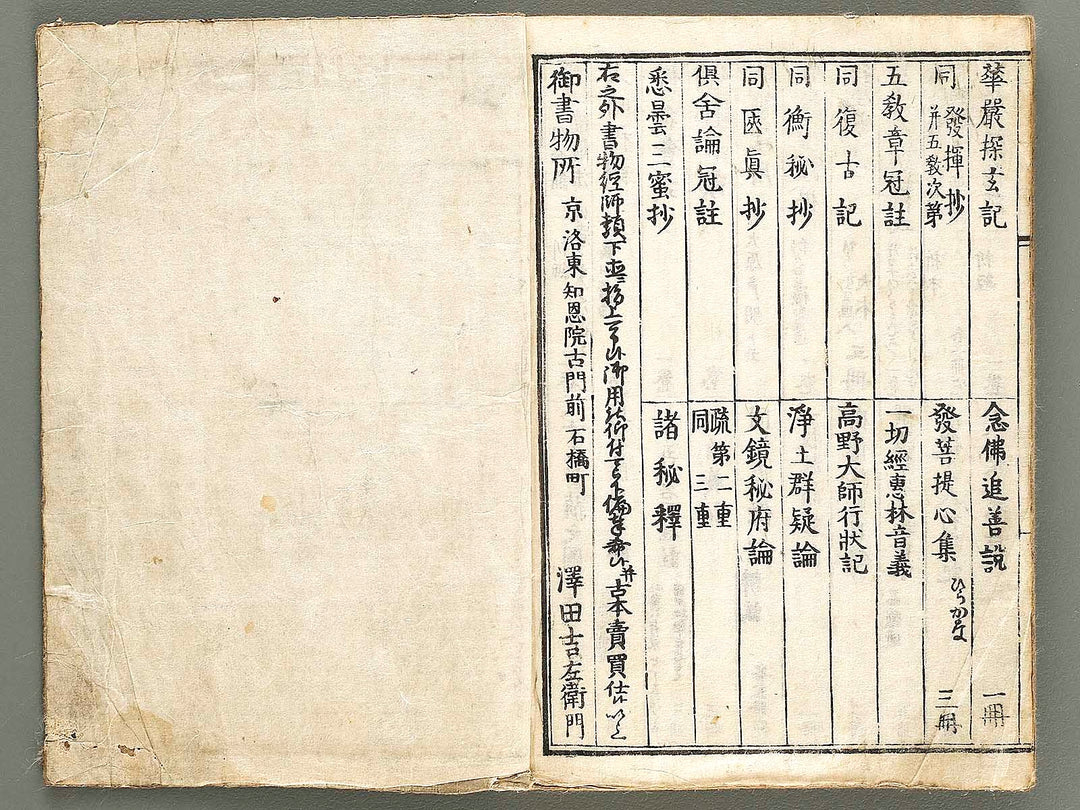 華嚴探玄記
同 發揮抄
并五教次第
五教章冠註
同復古記
同衡秘抄
同匡眞抄
倶舍論冠註
悉曇三蜜抄
念佛追善説 一冊
發菩提心集 ひらかな 三冊
一切經惠林音義
高野大師行狀記
淨土群疑論
文鏡秘府論
同疏第二重
三重
諸秘釋
右之外書物經師類下直ニ指上可申候御用被仰付可被下偏奉希候并古本賣買仕候以上
御書物所 京洛東知恩院古門前石橋町 澤田吉左衛門